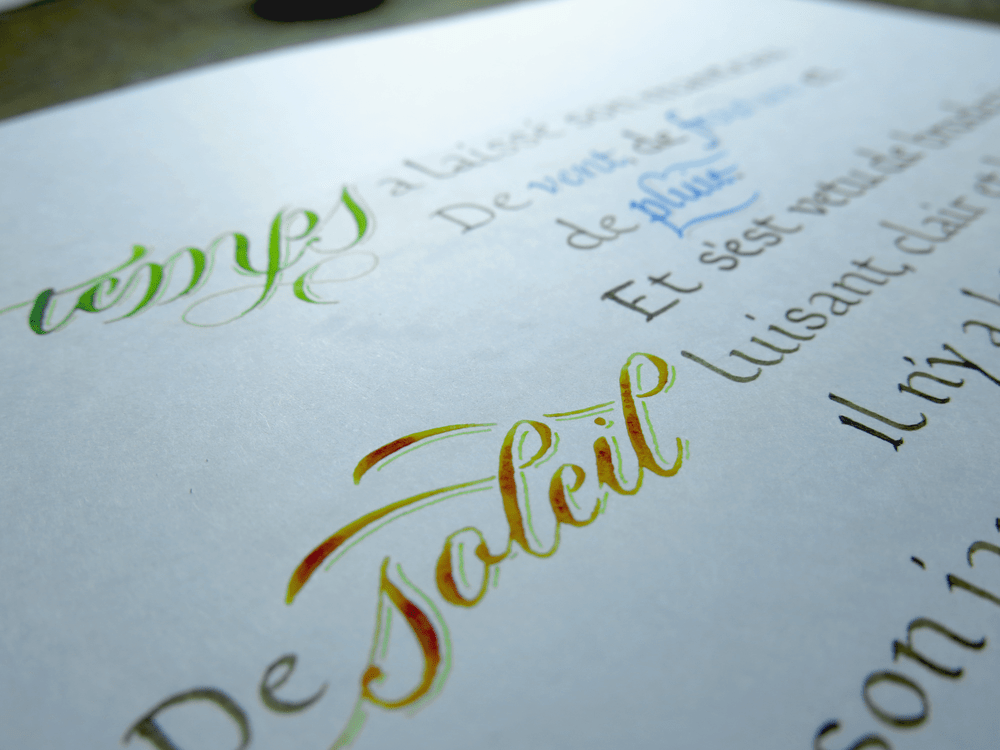 temps a laissé son manteau
De vent, de froidure et
de pluie.
Et s'est vetu de
De soleil luisant, clair et
Il n'y a
son